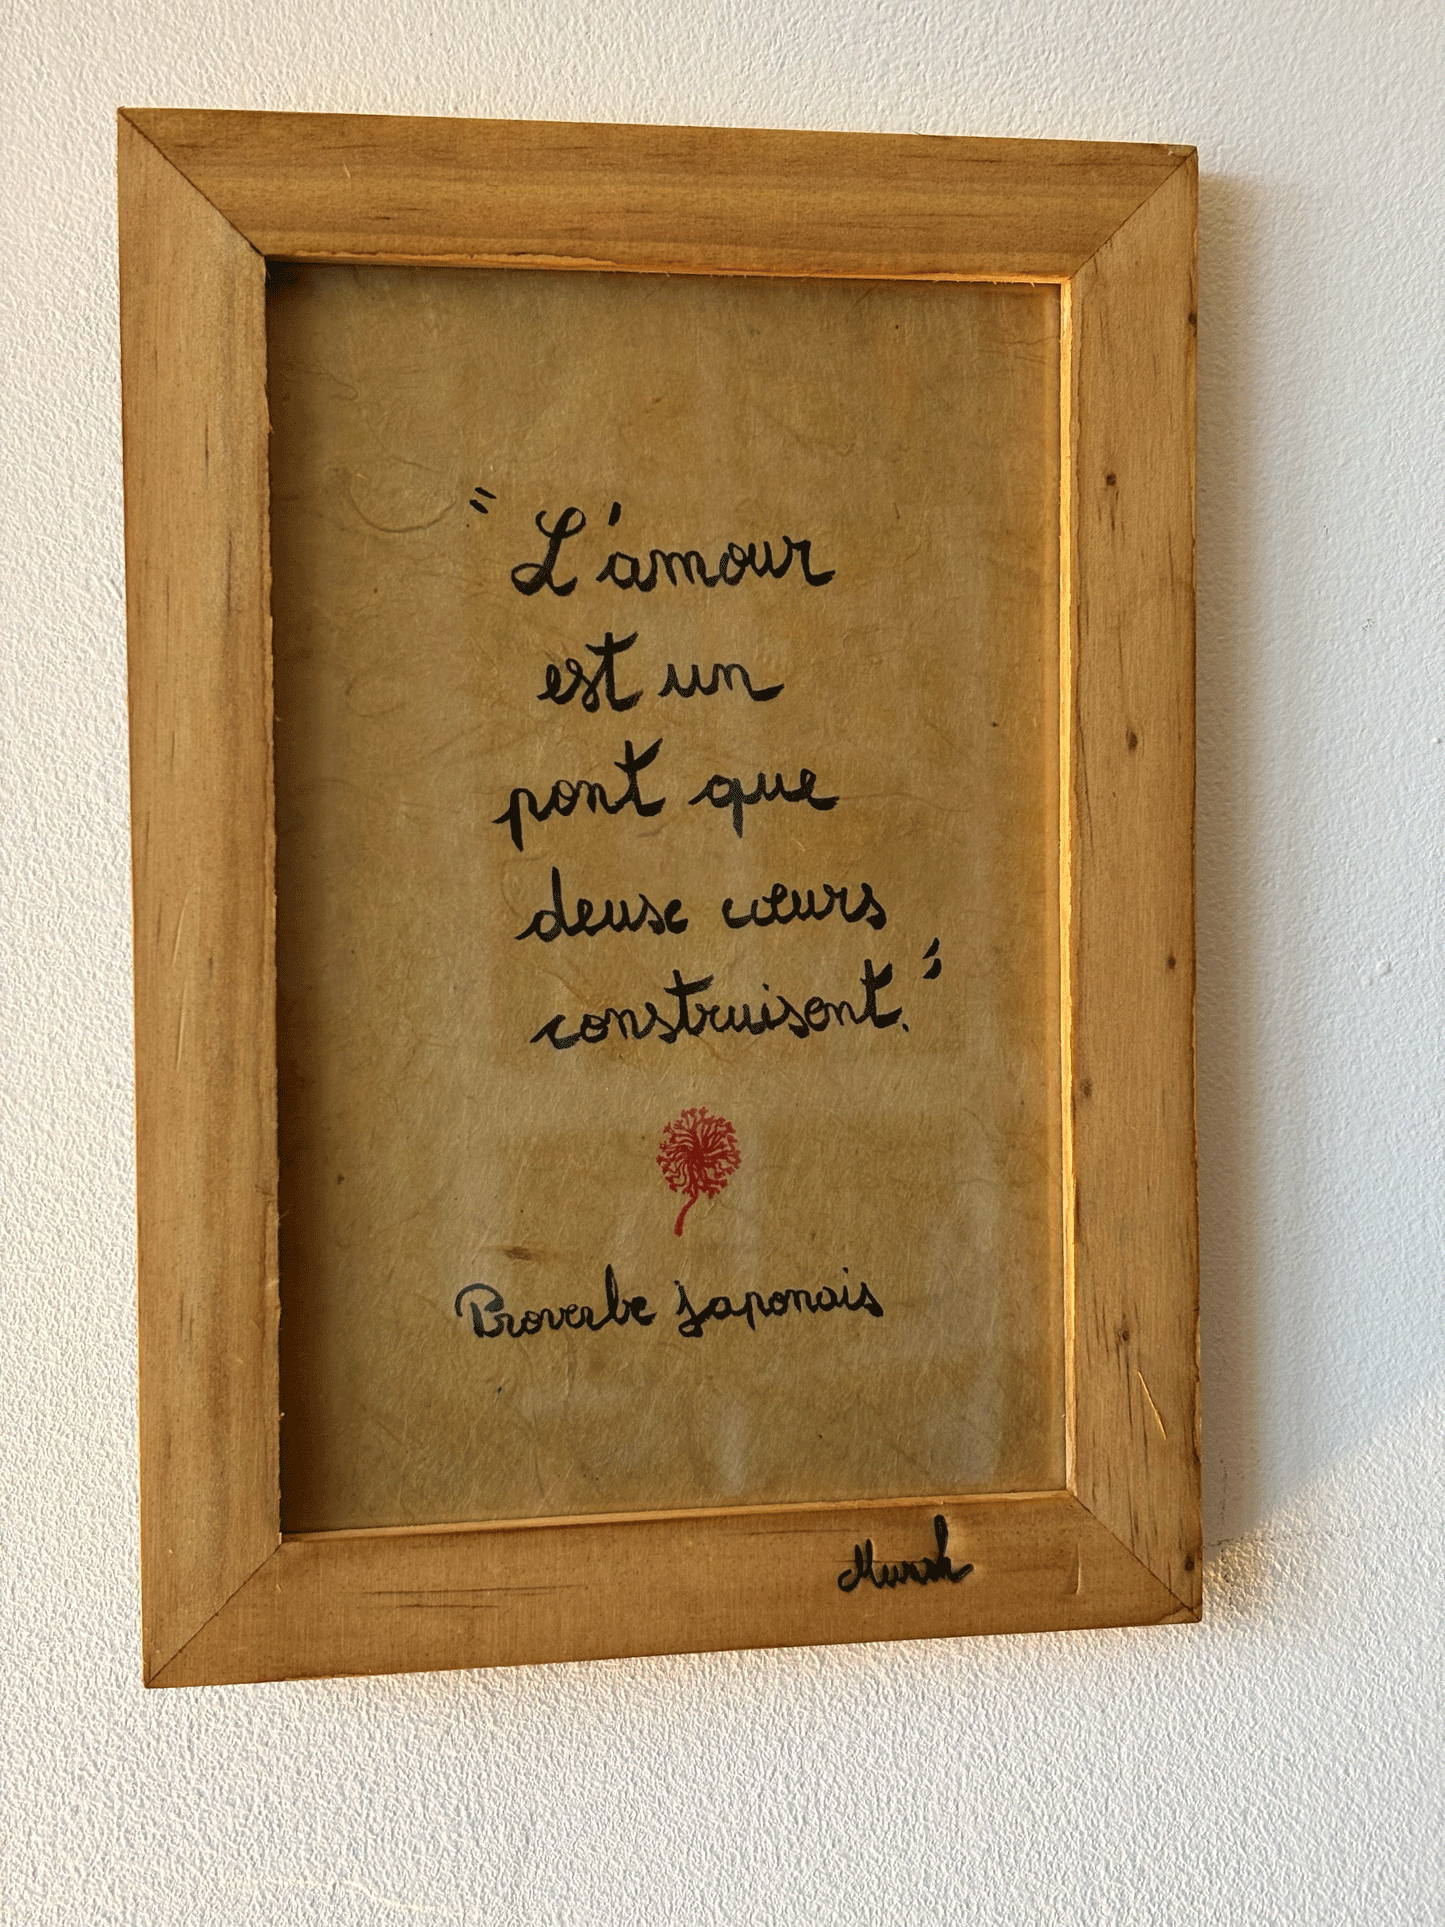 "L'amour
est un
pont que
deux cœurs
construisent."
Proverbe japonais